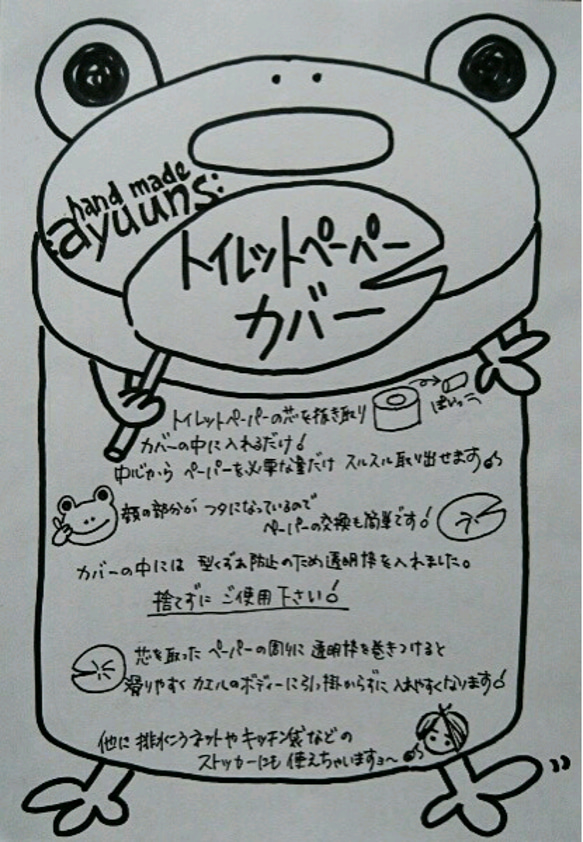 hand made
ayuuns:
トイレットペーパー
カバー
トイレットペーパーの芯を抜き取り
ぽいっ
カバーの中に入れるだけ!
中心から ペーパーを必要な量だけ スルスル取り出せます
顔の部分が フタになっているので
ペーパーの交換も簡単です!
カバーの中には 型くずれ防止のため透明枠を入れました。
捨てずに ご使用下さい!
芯を取った ペーパーの周りに 透明枠を巻きつけると
滑りやすく カエルのボディーに引っ掛からずに 入れやすくなります
他に 排水こうネットや キッチン袋などの
ストッカーにも 使えちゃいますョ〜